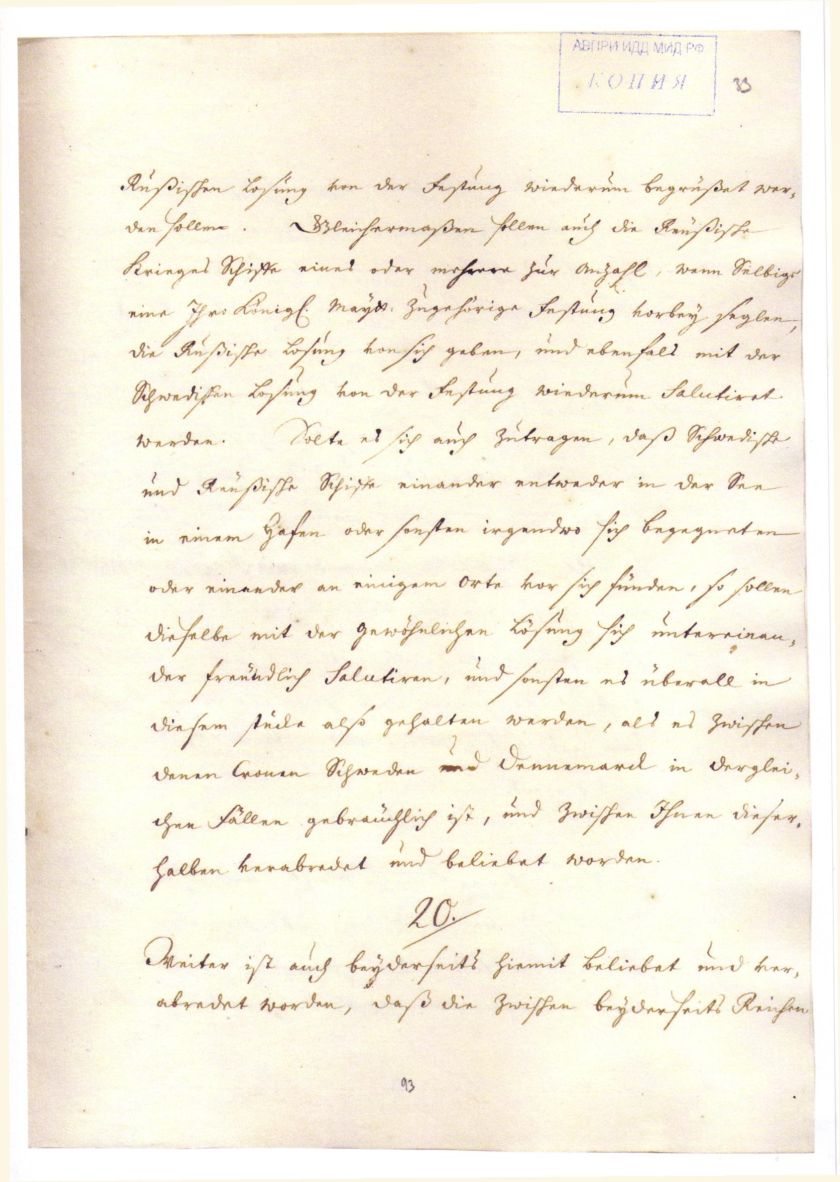 АВПРИ ИДД МИД РФ
КОПИЯ
33
Rußischen Losung von der Festung wiederum begrüßet wer-
den sollen. Gleichermaßen sollen auch die Reußische
Krieges Schiffe eines oder mehrere zur Anzahl, wenn Selbige
eine Ihro Königl. Mayt. zugehörige Festung vorbey seglen,
die Rußische Losung von sich geben, und ebenfals mit der
Schwedischen Losung von der Festung wiederum Salutiret
werden. Solte es sich auch zutragen, daß Schwedische
und Reußische Schiffe einander entweder in der See
in einem Hafen oder sonsten irgendwo sich begegneten
oder einander an einigem Orte vor sich fünden, so sollen
dieselbe mit der gewöhnlichen Lösung sich untereinan-
der freundlich Salutiren, und sonsten es überall in
diesem stücke alß gehalten werden, als es zwischen
denen Cronen Schweden und Dennemarck in derglei-
chen Fällen gebräuchlich ist, und zwischen Ihnen dieser-
halben verabredet und beliebet worden.
20.
Weiter ist auch beyderseits hiemit beliebet und ver-
abredet worden, daß die zwischen beyderseits Reichen
93